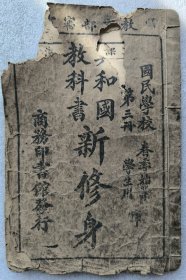 教育部審
國民學校
春季始業
學生用
第三冊
共和國
教科書
新修身
商務印書館發行